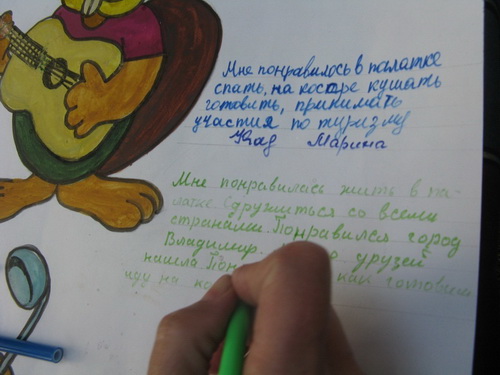 Мне понравилось в палатке
спать, на костре кушать
готовить, принимать
участия по туризму
Кад Марина
Мне понравилась жить в па-
латке. Сдружиться со всеми
странами. Понравился город
Владимир. друзей
нашла. как готовим